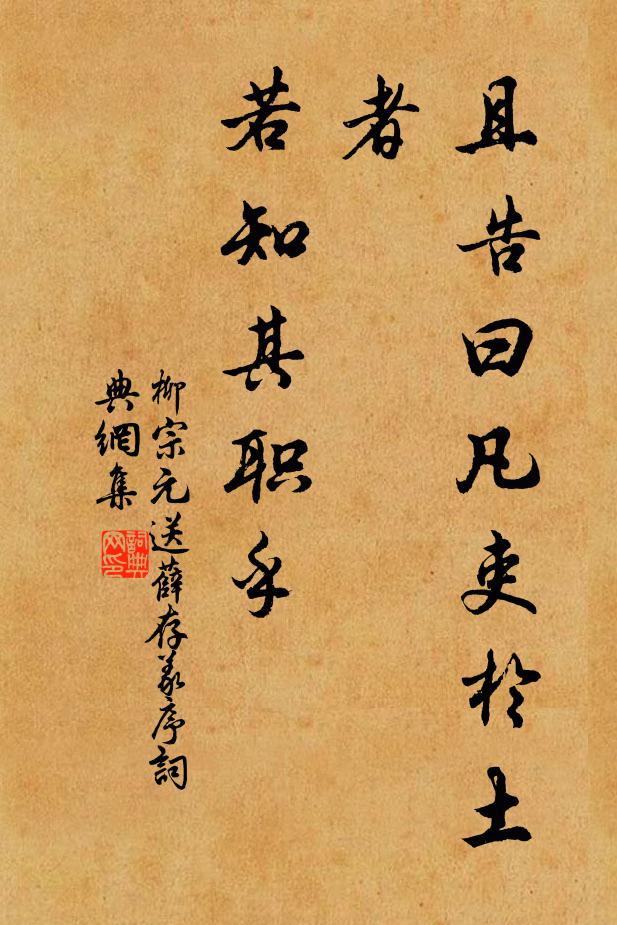 且告曰凡吏於土
者
若知其职乎
柳宗元送薛存义序詞
典網集
詞典
网印